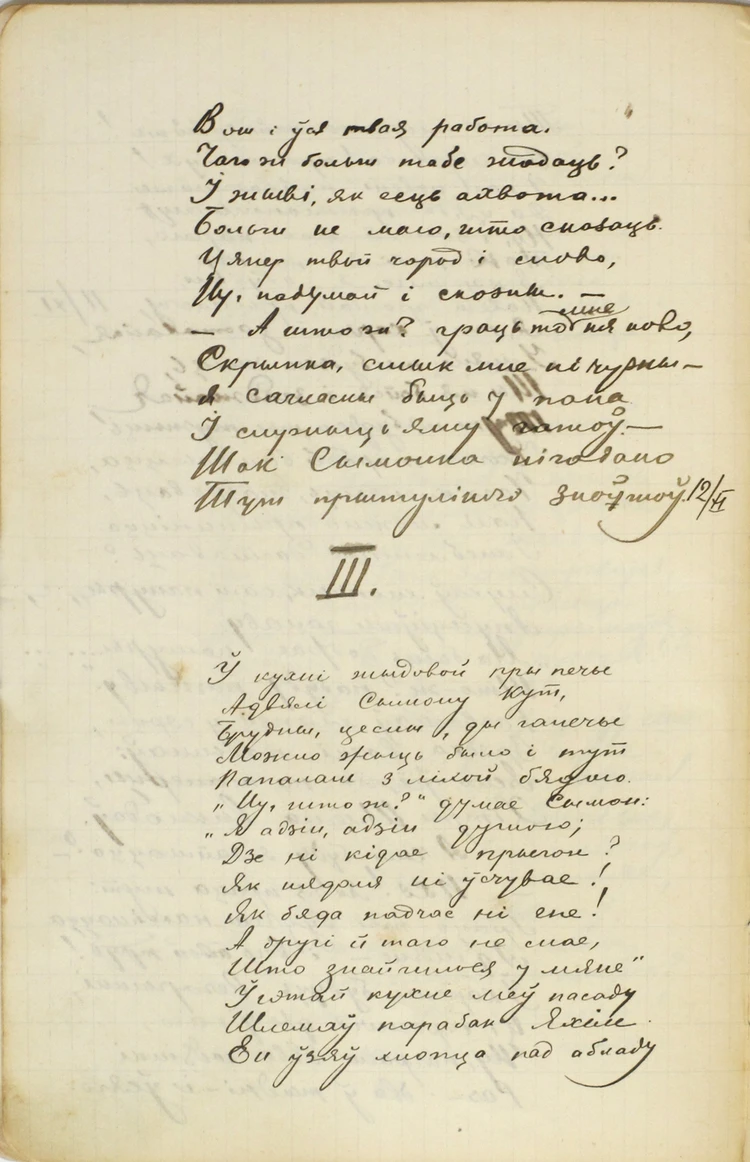 Вот і ўся твая работа.
Чаго ж больш табе жадаць?
І жыві, як есць ахвота...
Больш не маю, што сказаць.
Цяпер твой чарод і слово,
Ну, падумай і скажы. —
— А што ж? граць мне ня ново,
Скрыпка, смык мне ні чужы —
Я согласны быць у пана
І служыць яму гатоў. —
Так Сымонка нігадано
Тут прытулішчэ знайшоў. 12/VI
III.
Ў кухні жыдовой пры печы
Адвялі Сымону кут,
Брудны, цесны, ды галечы
Можно жыць было і тут
Папалам з ліхой бядою.
„Ну, што ж?" думае Сымон:
„Я адзін, адзін душою;
Дзе ні кідае прыгон?
Як нядоля ні ўсчувае!
Як бяда падчас ні гне!
А другі й таго не мае,
Што знайшлося у мяне"
Ў гэтай кухне меў пасаду
Шлемаў парабак Яхім.
Ён ўзяў хлопца пад абладу